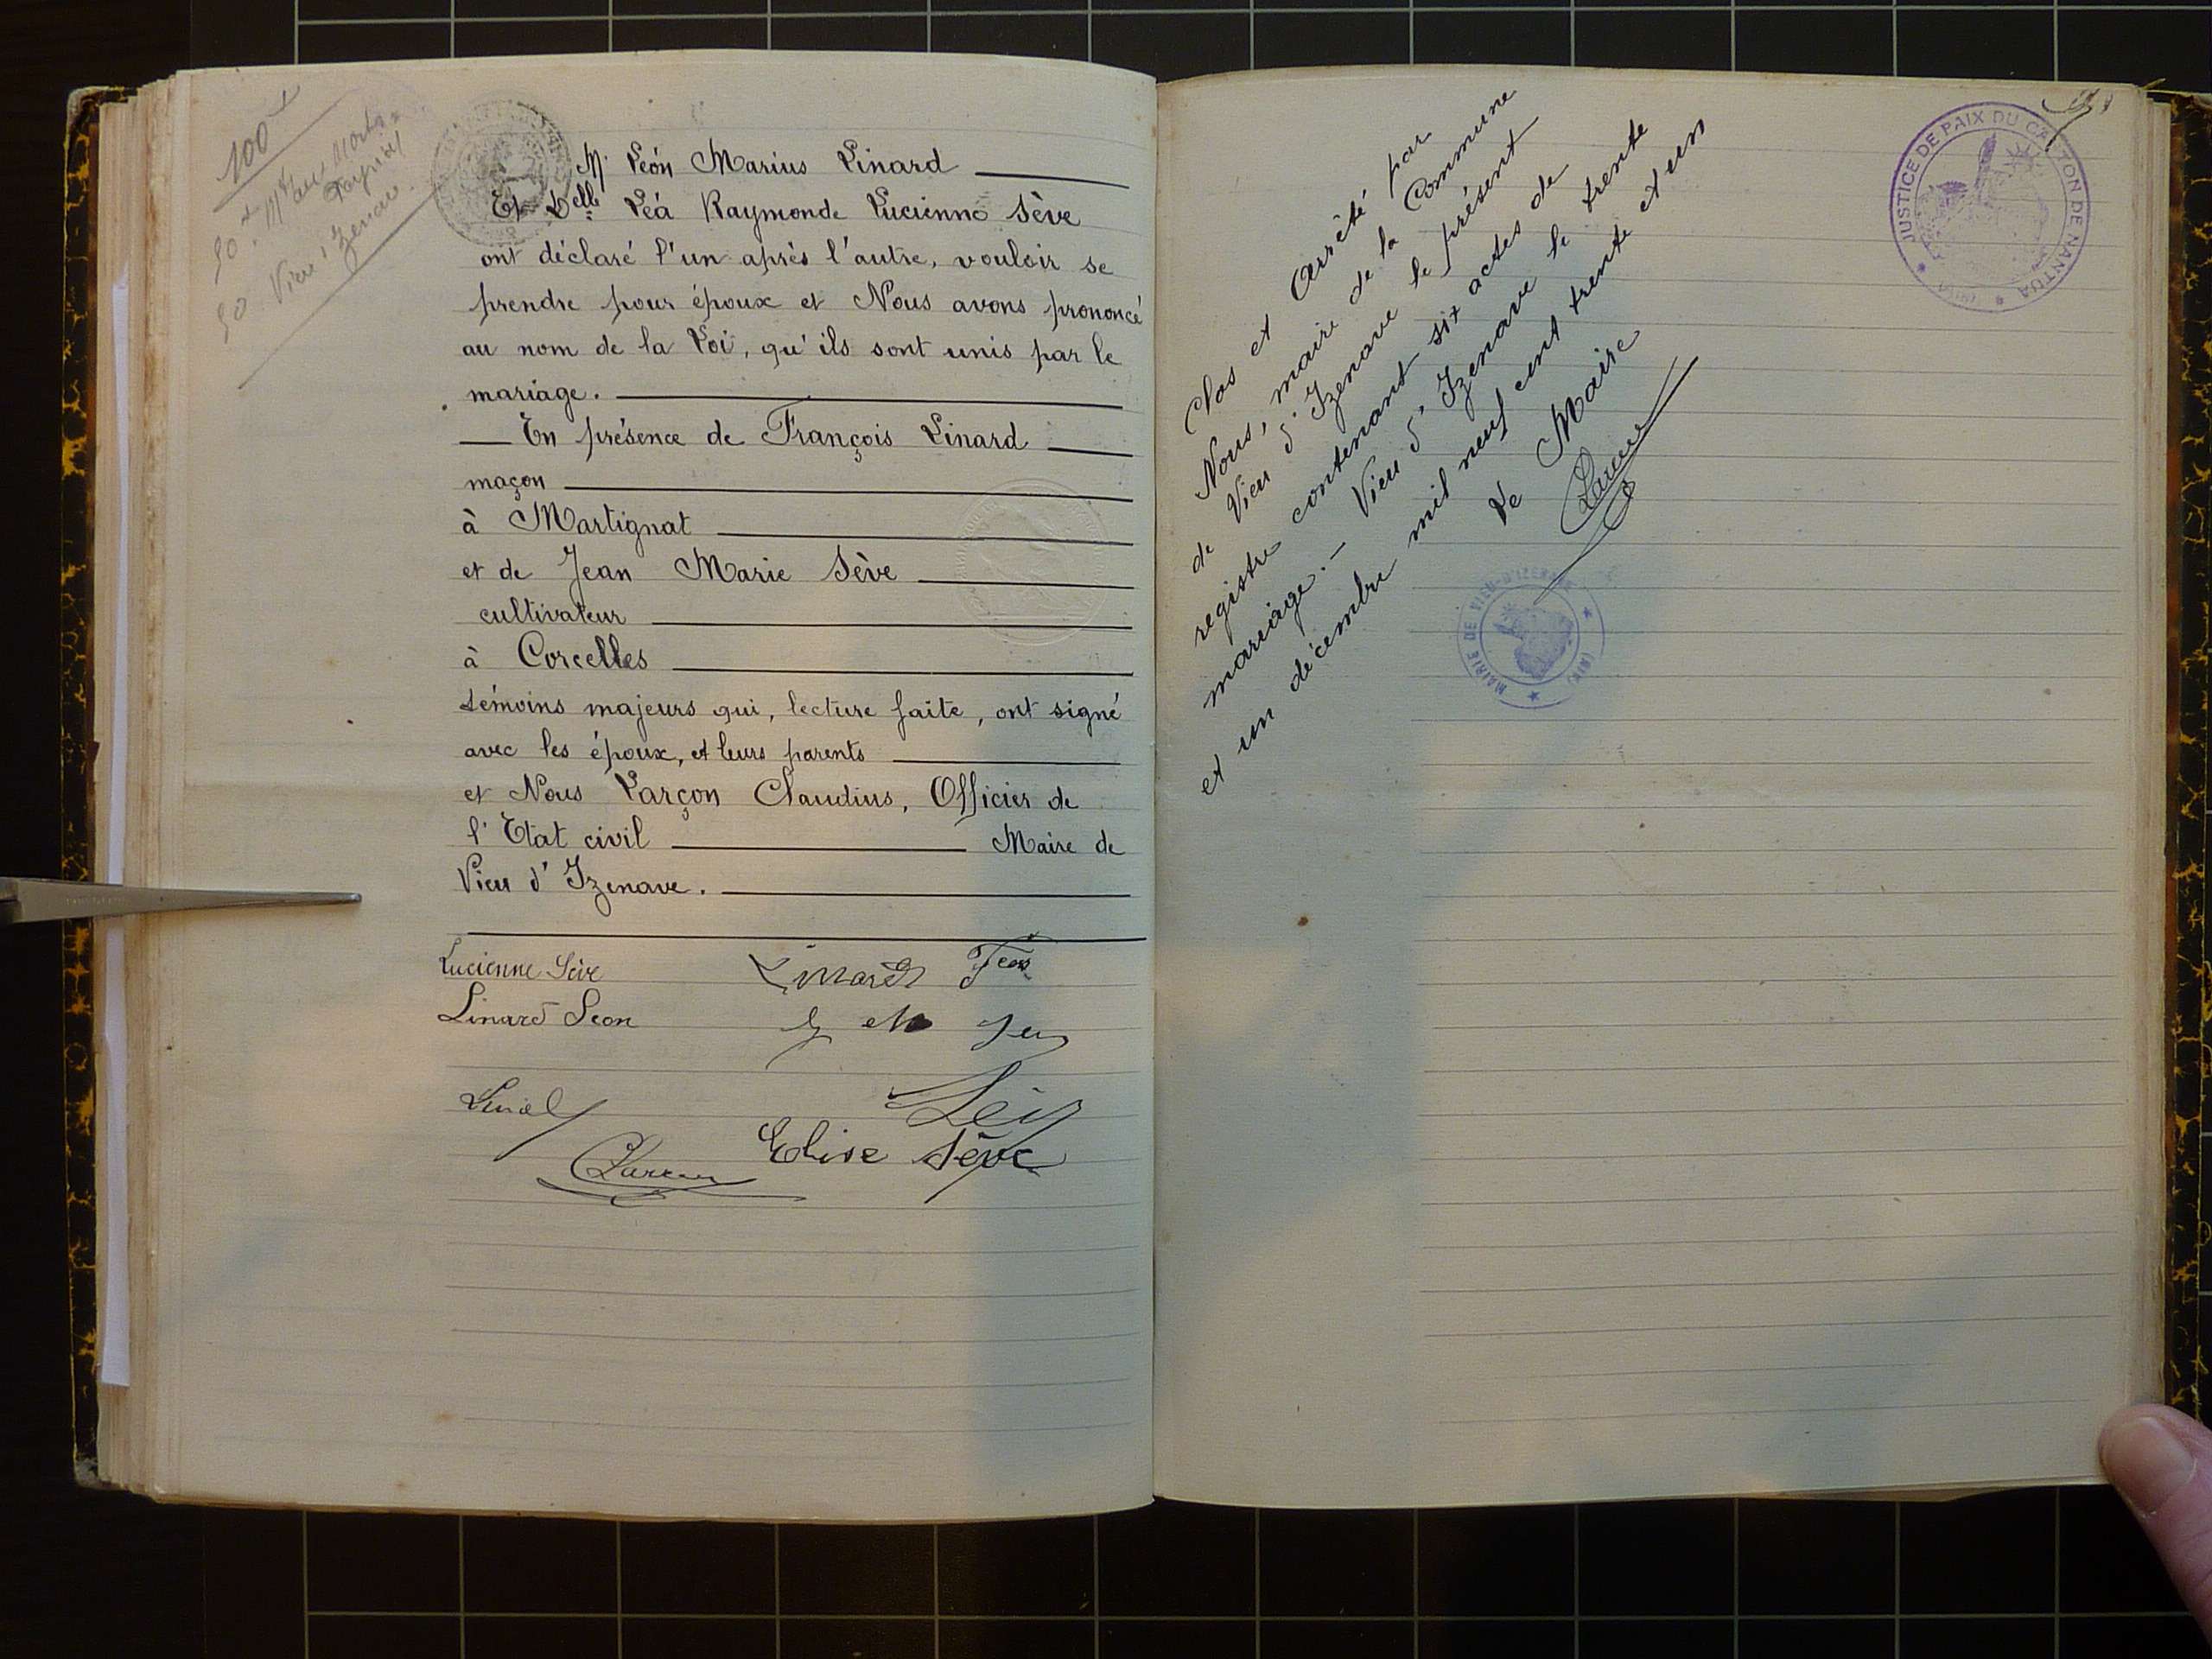 100
Vieu d'Izenave.
M. Léon Marius Linard
Et Delle Léa Raymonde Lucienne Sève
ont déclaré l'un après l'autre, vouloir se
prendre pour époux et Nous avons prononcé
au nom de la Loi, qu'ils sont unis par le
mariage.
En présence de François Linard
maçon
à Martignat
et de Jean Marie Sève
cultivateur
à Corcelles
témoins majeurs qui, lecture faite, ont signé
avec les époux, et leurs parents
et Nous Larçon Claudius, Officier de
l'Etat civil Maire de
Vieu d'Izenave.
Lucienne Sève Linard Fcois
Linard Leon
Elise Sève
CLarcon
Clos et Arrêté par
Nous, maire de la Commune
de Vieu d'Izenave le présent
registre contenant six actes de
mariage. — Vieu d'Izenave le trente
et un décembre mil neuf cent trente et un
Le Maire
CLarcon
MAIRIE DE VIEU-D'IZENAVE (AIN)
JUSTICE DE PAIX DU CANTON DE NANTUA (AIN)